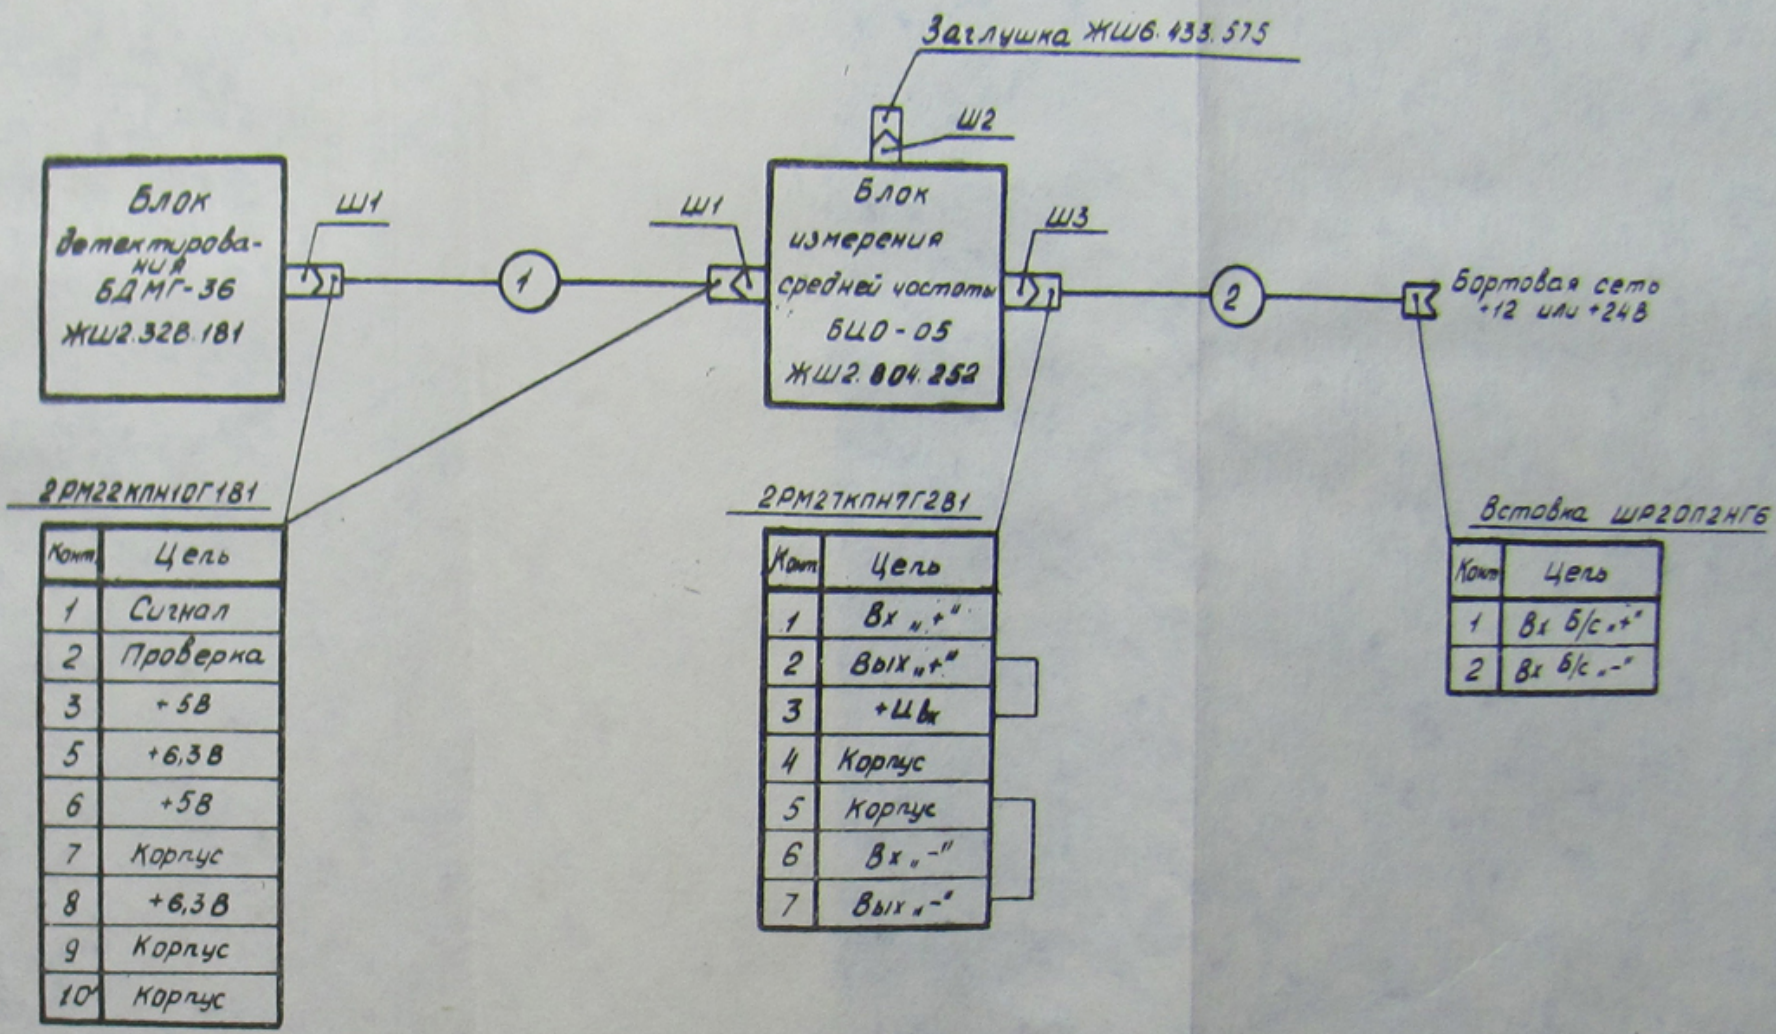 Заглушка ЖШ6.433.575
Ш2
Блок
детектирова-
ния
БДМГ-36
ЖШ2.328.181
Ш1
1
Ш1
Блок
измерения
средней частоты
БЦО-05
ЖШ2.804.252
Ш3
2
Бортовая сеть
+12 или +24В
2РМ22КПН10Г1В1
Конт. Цепь
1 Сигнал
2 Проверка
3 +5В
5 +6,3В
6 +5В
7 Корпус
8 +6,3В
9 Корпус
10 Корпус
2РМ27КПН7Г2В1
Конт Цепь
1 Вх „+"
2 Вых „+"
3 +Uвх
4 Корпус
5 Корпус
6 Вх „-"
7 Вых „-"
Вставка ШР20П2НГ6
Конт Цепь
1 Вх Б/с „+"
2 Вх Б/с „-"